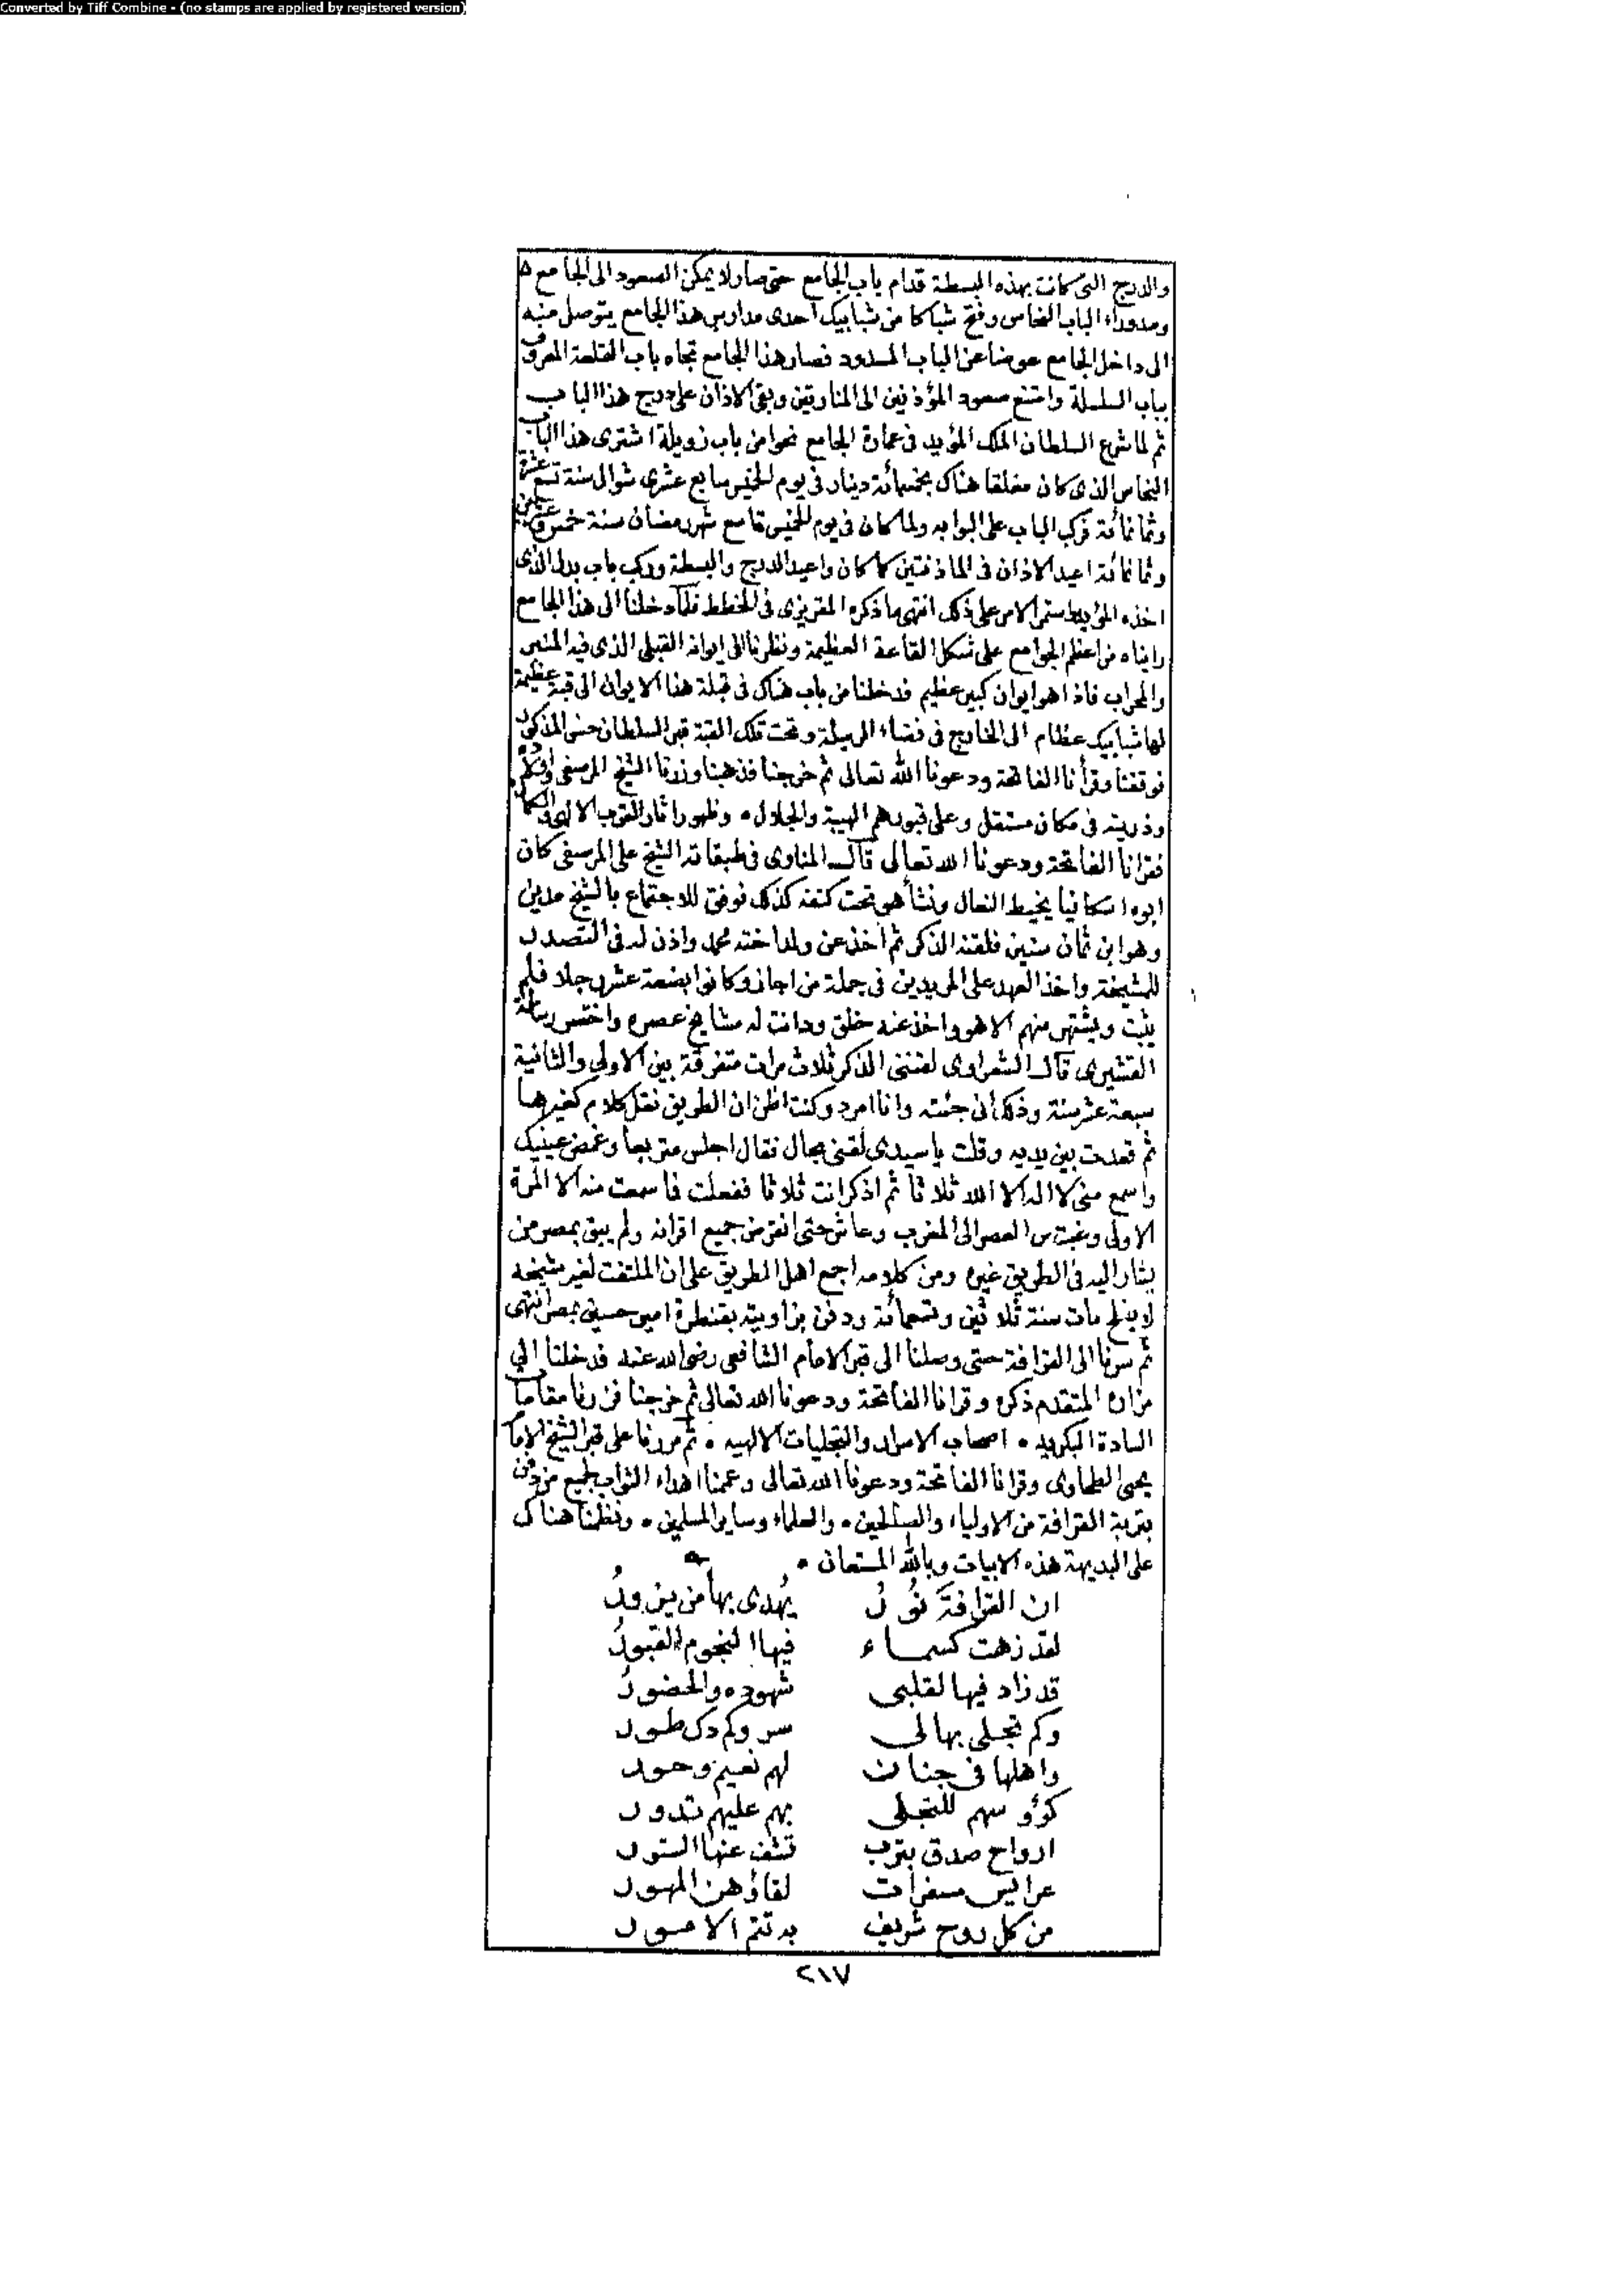 Converted by Tiff Combine - (no stamps are applied by registered version)
والدرج التى كانت بهذه البسطة قدام باب الجامع حتى صار لا يمكن الصعود الى الجامع
وسد وراء الباب النحاس وفتح شباكا من شبابيك احدى مدارس هذا الجامع يتوصل منه
الى داخل الجامع عوضا عن الباب المسدود فصار هذا الجامع تجاه باب القلعة المعروف
بباب السلسلة وامتنع صعود المؤذنين الى المنارتين وبقى الاذان على درج هذا الباب
ثم لما شرع السلطان الملك المؤيد فى عمارة الجامع نحوا من باب زويلة اشترى هذا الباب
النحاس الذى كان معلقا هناك بخمسمائة دينار فى يوم الخميس سابع عشرى شوال سنة تسع عشرة
وثمانمائة فركب الباب على البوابه ولما كان فى يوم الخميس تاسع شهر رمضان سنة خمس وعشرين
وثمانمائة اعيد الاذان فى الماذنتين كما كان واعيد الدرج والبسطة وركب باب بدل الذى
اخذه المؤيد واستمر الامر على ذلك انتهى ما ذكره المقريزى فى الخطط فلما دخلنا الى هذا الجامع
رايناه من اعظم الجوامع على شكل القاعة العظيمة ونظرنا الى ايوانه القبلى الذى فيه المنبر
والمحراب فاذا هو ايوان كبير عظيم فدخلنا من باب هناك فى قبلة هذا الايوان الى قبة عظيمة
لها شبابيك عظام الى الخارج فى فضاء الرميلة وتحت تلك القبة قبر السلطان حسن المذكور
فوقفنا وقرأنا الفاتحة ودعونا الله تعالى ثم خرجنا فذهبنا وزرنا الشيخ المرصفى واولاده
وذريته فى مكان مستقل وعلى قبورهم الهيبة والجلال • وظهور اثار القرب الالهى والكمال
فقرانا الفاتحة ودعونا الله تعالى قال المناوى فى طبقاته الشيخ على المرصفى كان
ابوه اسكافيا يخيط النعال ونشأ هو تحت كنفه كذلك فوفق للاجتماع بالشيخ مدين
وهو ابن ثمان سنين فلقنه الذكر ثم اخذ عن ولد اخته محمد واذن له فى التصدر
للمشيخة واخذ العهد على المريدين فى جملة من اجاز وكانوا بضعة عشر رجلا فلم
يثبت ويشتهر منهم الا هو واخذ عنه خلق ودانت له مشايخ عصره واختصر رسالة
القشيرى قال الشعراوى لقننى الذكر ثلاث مرات متفرقة بين الاولى والثانية
سبعة عشر سنة وذلك أنى جئته وانا امرد وكنت اظن ان الطريق نقل كلام كغيرها
ثم قعدت بين يديه وقلت ياسيدى لقنى بحال فقال اجلس متربعا وغمض عينيك
واسمع منى لا اله الا الله ثلاثا ثم اذكر انت ثلاثا ففعلت فما سمعت منه الا المرة
الاولى وغبت من العصر الى المغرب وعاش حتى انقرض جميع اقرانه ولم يبق بمصر من
يشار اليه فى الطريق غيره ومن كلامه اجمع اهل الطريق على ان الملتفت لغير شيخه
لا يفلح مات سنة ثلاثين وتسعمائة ودفن بزاويته بقنطرة امير حسين بمصر انتهى
ثم سرنا الى القرافة حتى وصلنا الى قبر الامام الشافعى رضى الله عنه فدخلنا الى
مزاره المتقدم ذكره وقرانا الفاتحة ودعونا الله تعالى ثم خرجنا فزرنا مقامات
السادة البكريه • اصحاب الاسرار والتجليات الالهيه • ثم مررنا على قبر الشيخ الامام
يحيى الطحاوى وقرانا الفاتحة ودعونا الله تعالى وعممنا اهداء الثواب لجميع من دفن
بتربة القرافة من الاولياء والصالحين • والعلماء وساير المسلمين • ونظمنا هناك
على البديهة هذه الابيات وبالله المستعان •
ان القرافةَ نُورُ يُهدى بها من يزورُ
لقد زهت كسماء فيها النجوم القبورُ
قد زاد فيها لقلبى شهوده والحضورُ
وكم تجلى بها لى سر وكم دك طور
واهلها فى جنان لهم نعيم وحور
كؤوسهم للتجلى بهم عليهم تدور
ارواح صدق بترب تشف عنها الستور
عرايس مسفرات لقاؤهن المهور
من كل روح شريف به تتم الامور
٢١٧